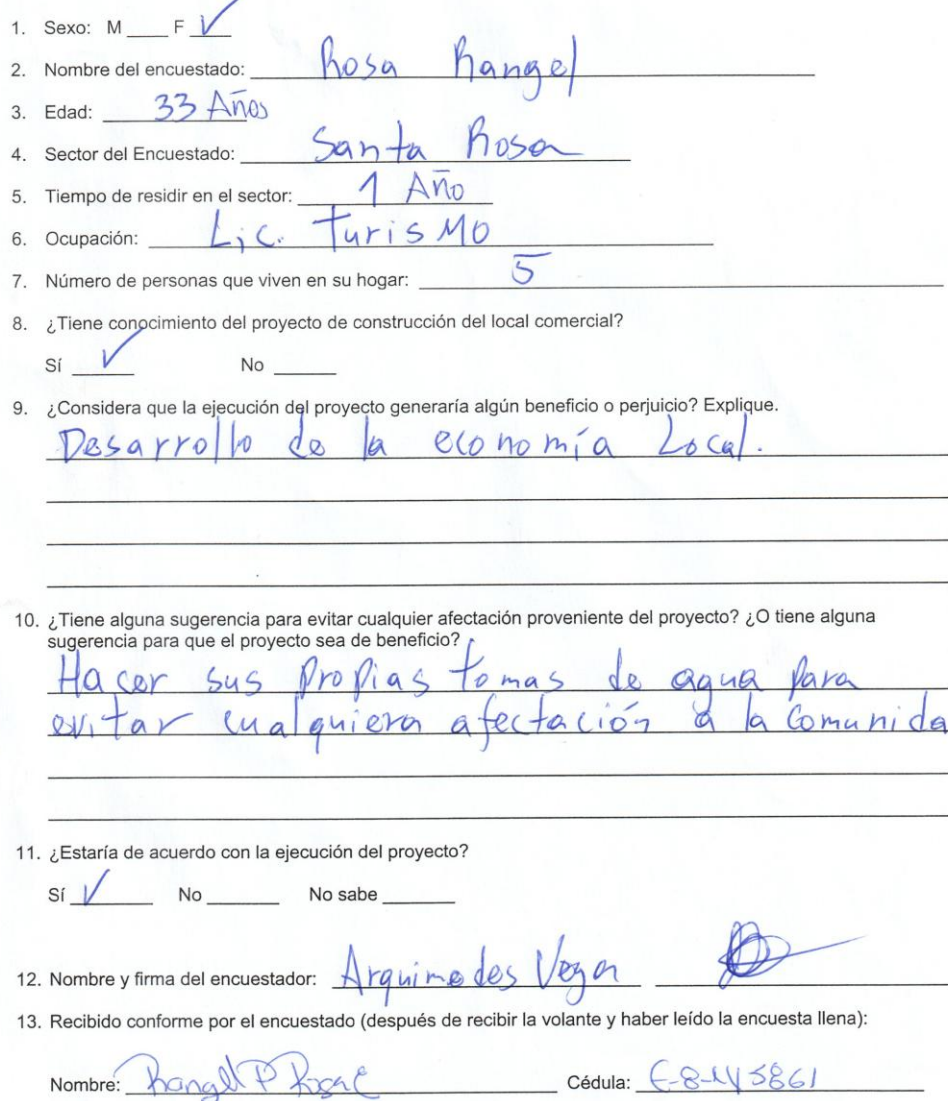 1. Sexo: M ____ F √
2. Nombre del encuestado: Rosa Rangel
3. Edad: 33 Años
4. Sector del Encuestado: Santa Rosa
5. Tiempo de residir en el sector: 1 Año
6. Ocupación: Lic. Turismo
7. Número de personas que viven en su hogar: 5
8. ¿Tiene conocimiento del proyecto de construcción del local comercial?
Sí √ No ____
9. ¿Considera que la ejecución del proyecto generaría algún beneficio o perjuicio? Explique.
Desarrollo de la economía Local.
10. ¿Tiene alguna sugerencia para evitar cualquier afectación proveniente del proyecto? ¿O tiene alguna
sugerencia para que el proyecto sea de beneficio?
Hacer sus Propias tomas de agua Para
evitar cualquiera afectación a la Comunida
11. ¿Estaría de acuerdo con la ejecución del proyecto?
Sí √ No ____ No sabe ____
12. Nombre y firma del encuestador: Arquimedes Vega
13. Recibido conforme por el encuestado (después de recibir la volante y haber leído la encuesta llena):
Nombre: Rangel P Rosa Cédula: